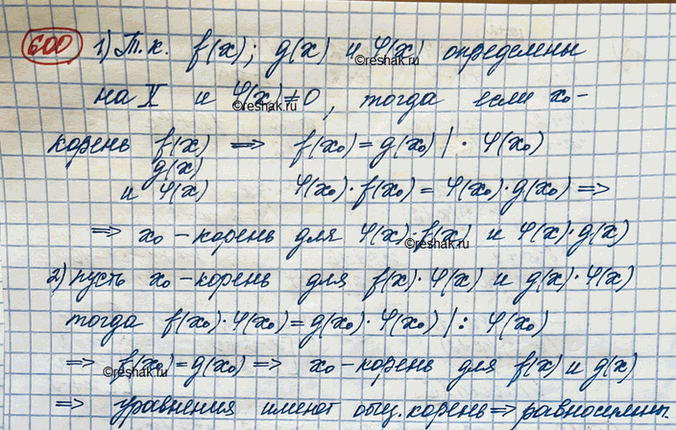 600 1) Т.к. f(x); g(x) и φ(x) определены
на X и φ(x)≠0, тогда если x₀ -
корень f(x) ⇒ f(x₀)=g(x₀) | · φ(x₀)
g(x)
и φ(x) φ(x₀)·f(x₀)=φ(x₀)·g(x₀) ⇒
⇒ x₀ - корень для φ(x)·f(x) и φ(x)·g(x)
2) пусть x₀ - корень для f(x)·φ(x) и g(x)·φ(x)
тогда f(x₀)·φ(x₀)=g(x₀)·φ(x₀) | : φ(x₀)
⇒ f(x₀)=g(x₀) ⇒ x₀ - корень для f(x) и g(x)
⇒ уравнения имеют общ. корень ⇒ равносильны.
©reshak.ru
©reshak.ru
©reshak.ru
©reshak.ru